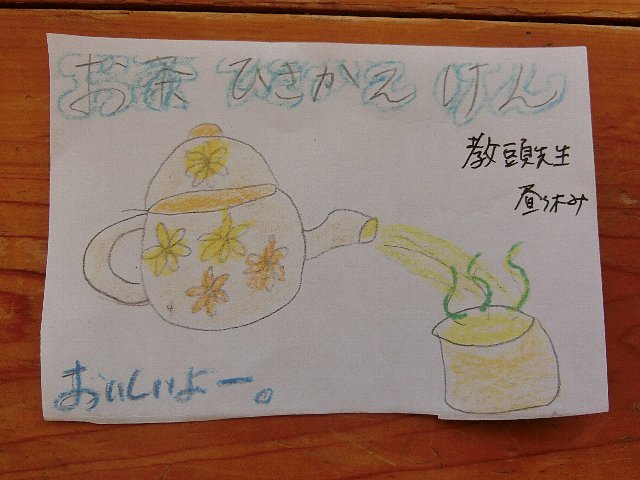 お茶 ひきかえ けん
教頭先生
昼休み
おいしいよー。